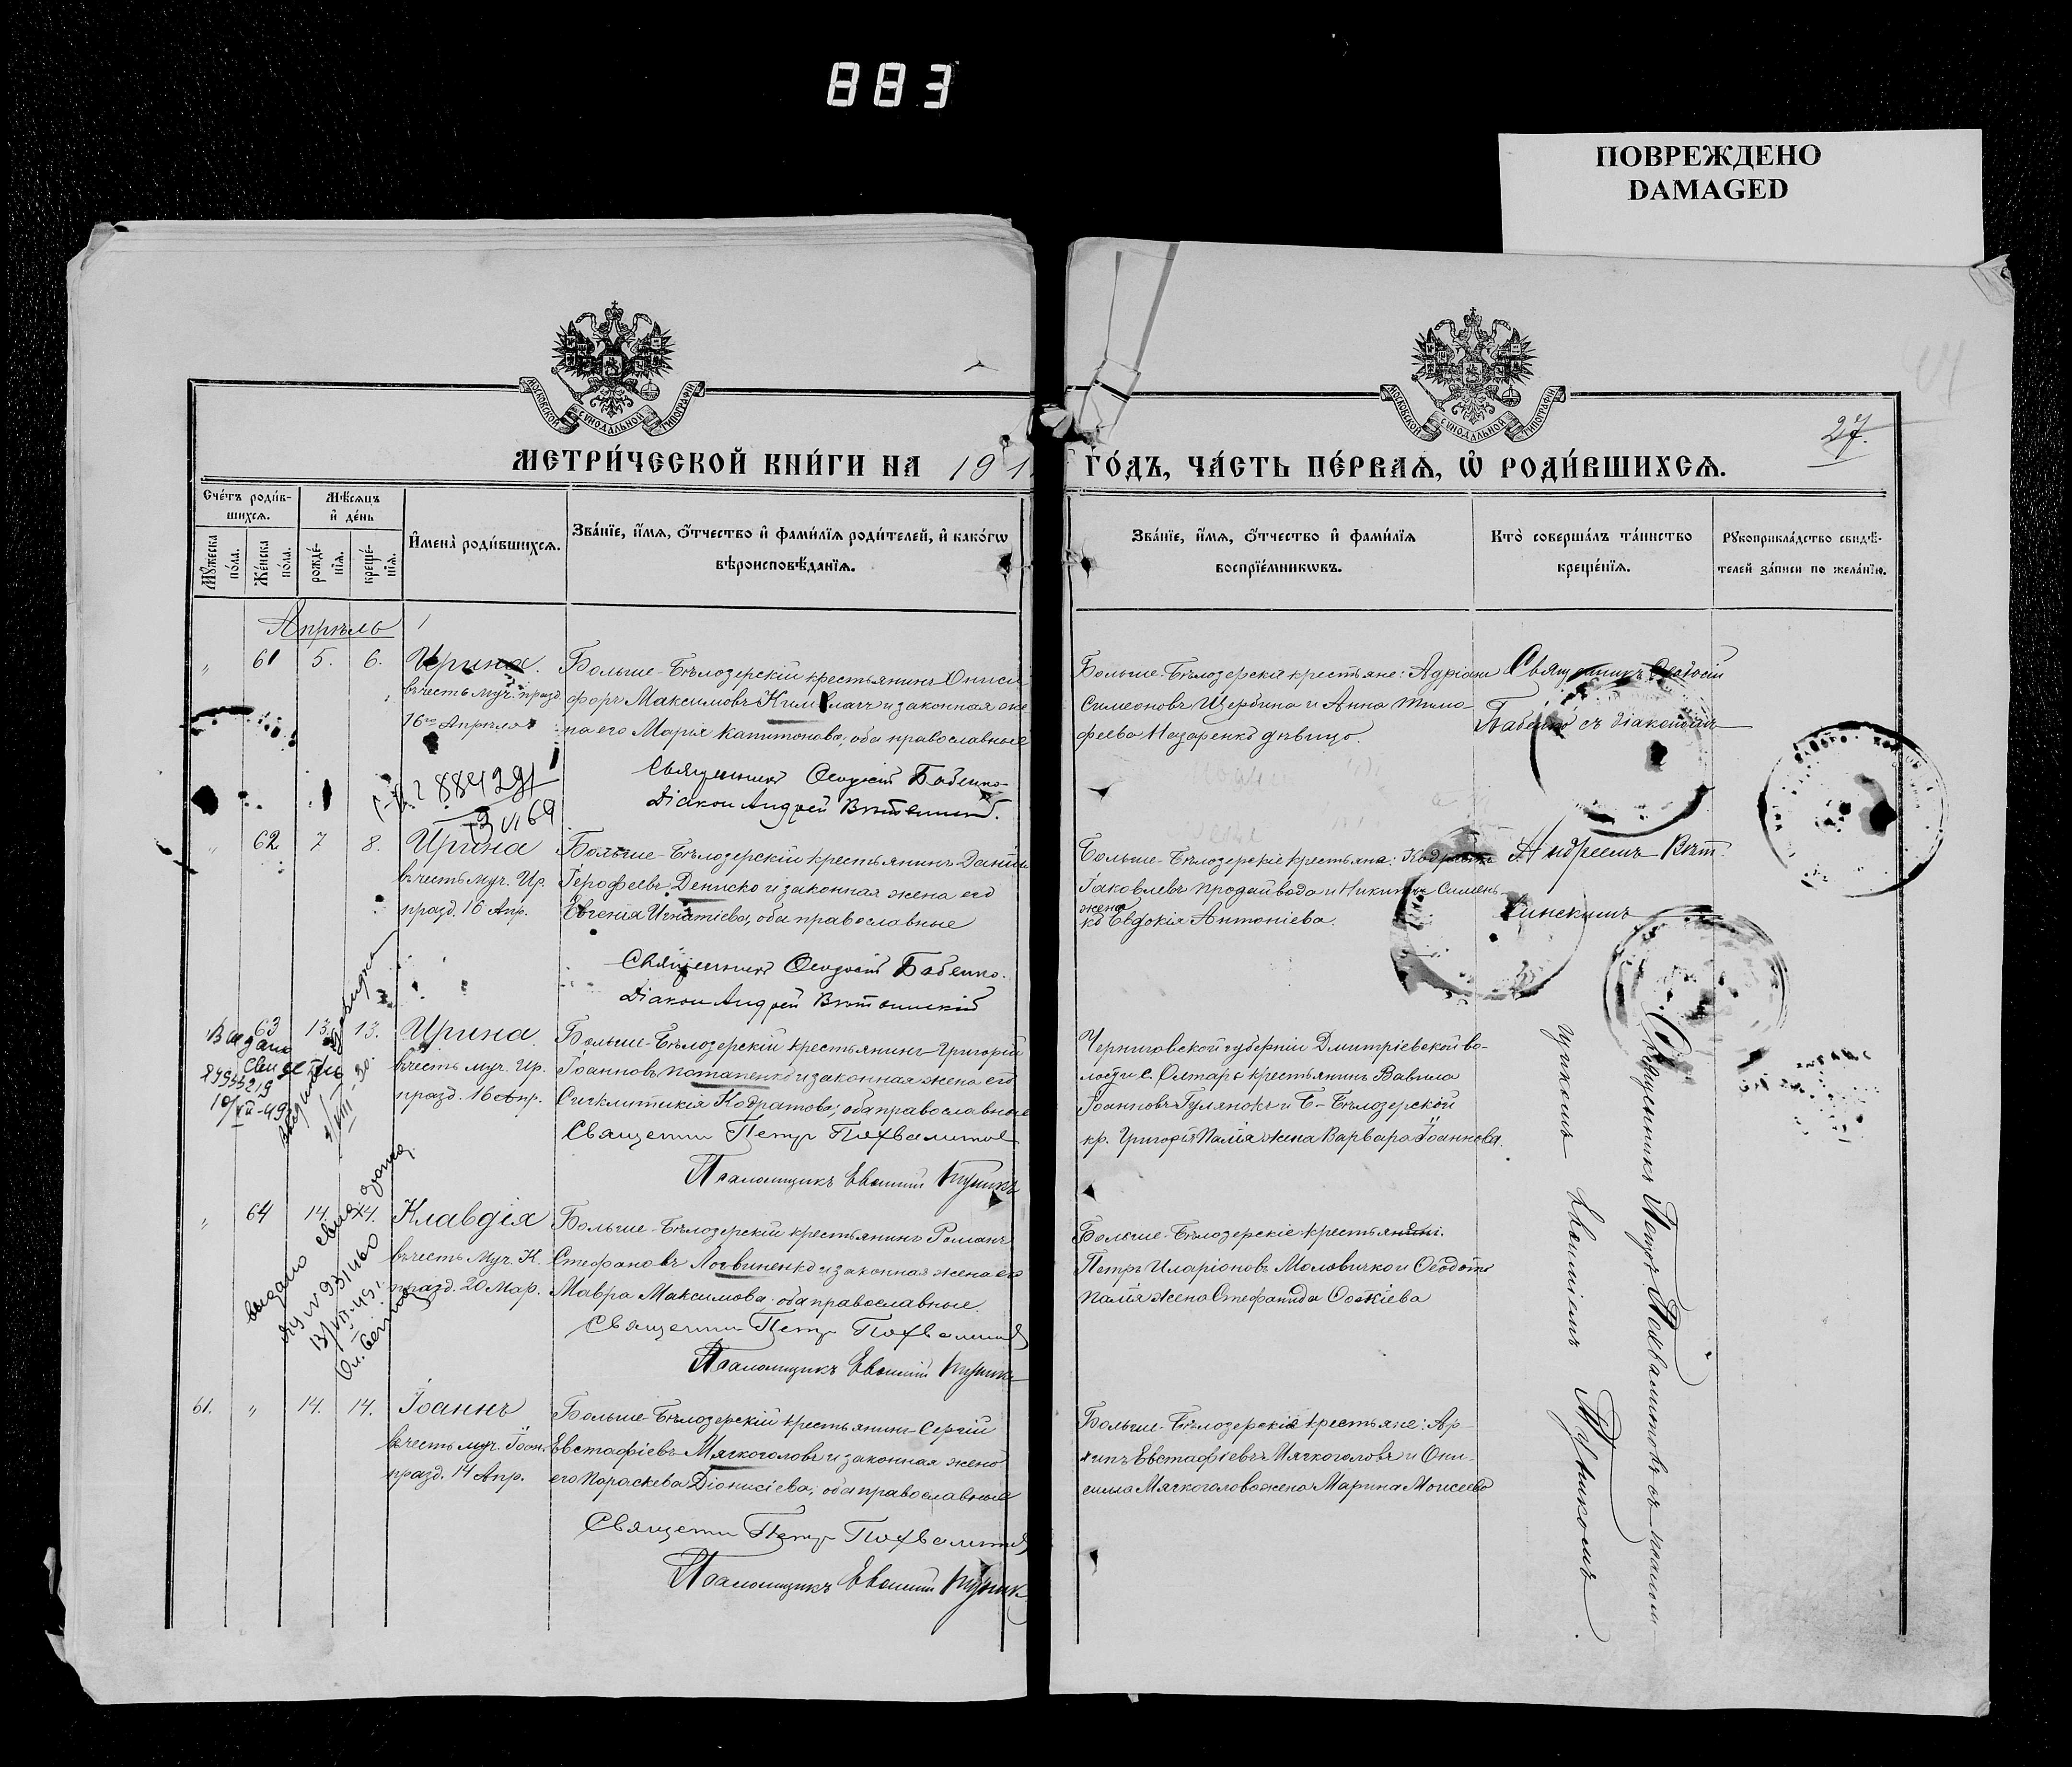 883
ПОВРЕЖДЕНО
DAMAGED
МОСКОВСКОЙ СѴНОДАЛЬНОЙ ТИПОГРАФІИ
МОСКОВСКОЙ СѴНОДАЛЬНОЙ ТИПОГРАФІИ
27.
МЕТРИ́ЧЕСКОЙ КНИ́ГИ НА 191
ГО́ДЪ, ЧА́СТЬ ПЕ́РВАѦ, Ѡ҆ РОДИ́ВШИХСѦ.
Сче́тъ роди́в-
шихсѧ.
Мꙋ́жеска по́ла.
Же́нска по́ла.
Мѣ́сѧцъ
и҆ де́нь
рожде́-
нїѧ.
креще́-
нїѧ.
И҆мена̀ роди́вшихсѧ.
Зва́нїе, и҆́мѧ, ѻ҆́тчество и҆ фами́лїѧ роди́телей, и҆ како́гѡ
вѣроисповѣ́данїѧ.
Зва́нїе, и҆́мѧ, ѻ҆́тчество и҆ фами́лїѧ
воспрїе́мникѡвъ.
Кто̀ соверша́лъ та́инство
креще́нїѧ.
Рꙋкоприкла́дство свидѣ́-
телей за́писи по жела́нїю.
Апрѣль
„ 61 5. 6. Ирина.
въ честь муч. празд.
16го Апрѣля
Больше-Бѣлозерскій крестьянинъ Ониси-
форъ Максимовъ и законная же
на его Марія Капитонова, оба православные
Священникъ Ѳеодосій Бабенко.
Діаконъ Андрей
Больше-Бѣлозерскіе крестьяне: Адріанъ
Симеоновъ Щербина и Анна Тимо-
феева Назаренко дѣвица.
Священникъ Ѳеодосій
Бабенко съ діакономъ
884291
VI 69
„ 62 7 8. Ирина
въ честь муч. Ир.
празд. 16 Апр.
Больше-Бѣлозерскій крестьянинъ Даніилъ
Герофеевъ Дениско и законная жена его
Евгенія Игнатіева, оба православные
Священникъ Ѳеодосій Бабенко.
Діаконъ Андрей
Больше-Бѣлозерскіе крестьяне:
Іаковлевъ Продайвода и Никиты Симень-
жена
ко Евдокія Антоніева.
Андреемъ Вѣт
инскимъ
63 13. 13. Ирина.
въ честь муч. Ир.
празд. 16 Апр.
Больше-Бѣлозерскій крестьянинъ Григорій
Іоанновъ Потапенко и законная жена его
Сигклитикія Кодратова; оба православные
Священникъ Петръ Похвалитовъ
Псаломщикъ Евѳимій Пупикъ
Черниговской губерніи Дмитріевской во-
лости с. Олтаръ крестьянинъ Вавила
Іоанновъ Гулянокъ и Б-Бѣлозерской
кр. Григорія Палія жена Варвара Іоаннова.
Выдано
10/VII-49
„ 64 14. 14. Клавдія
въ честь муч. К.
празд. 20 Мар.
Больше-Бѣлозерскій крестьянинъ Романъ
Стефановъ Логвиненко и законная жена его
Мавра Максимова; оба православные.
Священникъ Петръ Похвалитовъ
Псаломщикъ Евѳимій Пупикъ
Больше-Бѣлозерскіе крестьяне:
Петръ Иларіоновъ Моловичко и Ѳеодота
Палія жена Стефанида
выдано
61. „ 14. 14. Іоаннъ
въ честь муч. Іоан.
празд. 14 Апр.
Больше-Бѣлозерскій крестьянинъ Сергій
Евстафіевъ Мягкоголовъ и законная жена
его Параскева Діонисіева; оба православные
Священникъ Петръ Похвалитовъ
Псаломщикъ Евѳимій Пупикъ
Больше-Бѣлозерскіе крестьяне: Ар-
хипъ Евстафіевъ Мягкоголовъ и Они-
сима Мягкоголова жена Марина Моисеева
Священникъ Петръ Похвалитовъ съ псалом-
щикомъ Евѳиміемъ Пупикомъ.